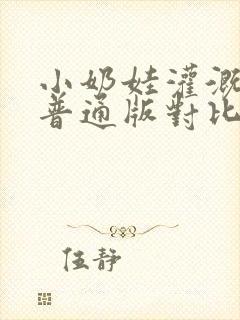 小奶娃灌溉
普通版對比
伍靜